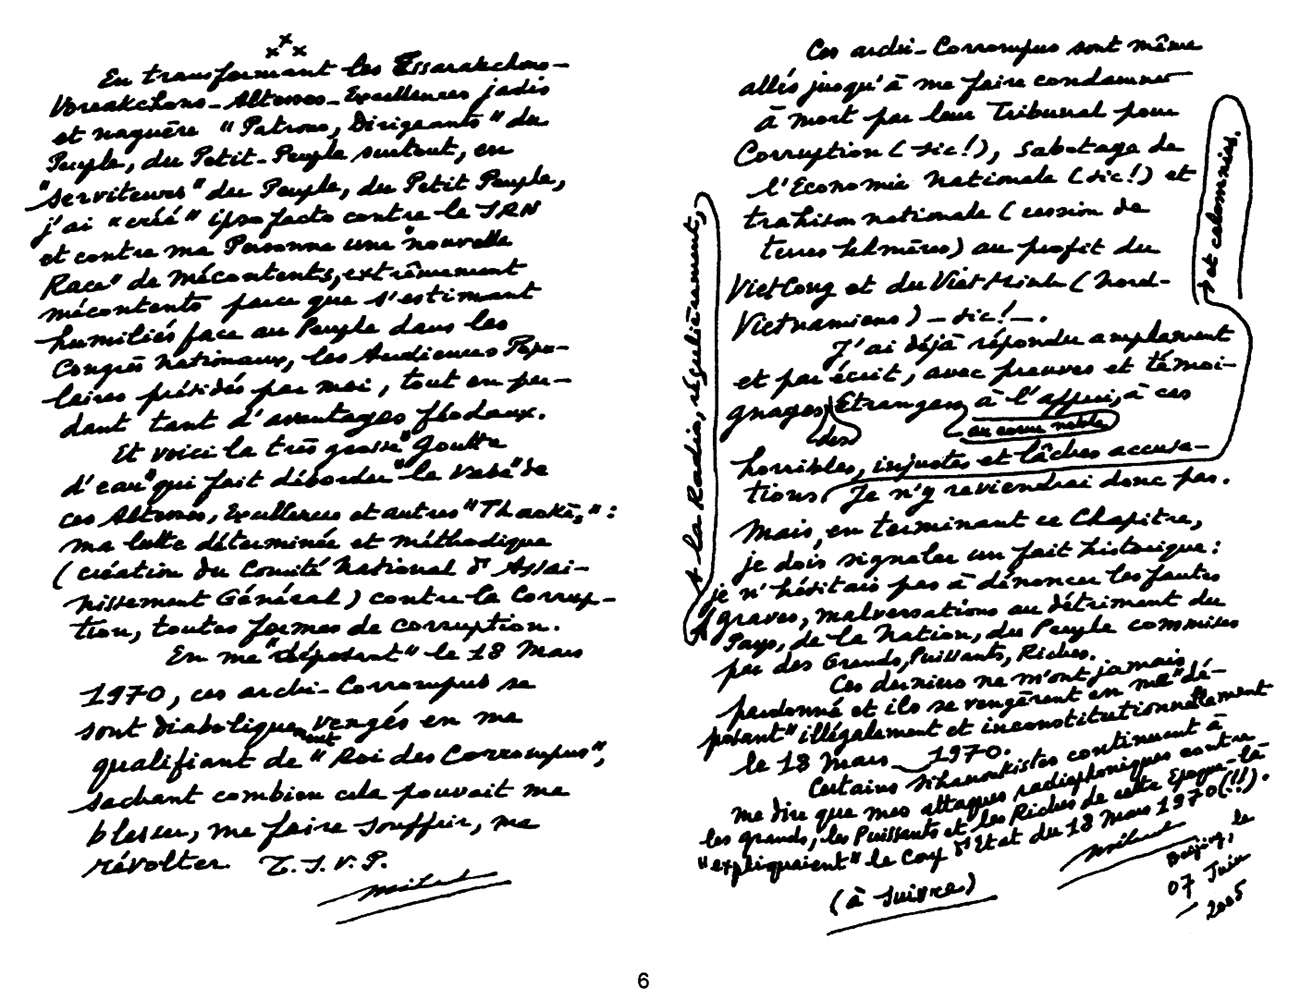 x x x
En transformant les Essarakchons-
Voreakchons-Altesses-Excellences jadis
et naguère "Patrons, Dirigeants" du
Peuple, du Petit-Peuple surtout, en
"serviteurs" du Peuple, du Petit Peuple,
j'ai "créé" ipso facto contre le SRN
et contre ma Personne une "nouvelle
Race" de mécontents, extrêmement
mécontents parce que s'estimant
humiliés face au Peuple dans les
Congrès Nationaux, les Audiences Popu-
laires présidés par moi, tout en per-
dant tant d'avantages féodaux.
Et voici la très grosse "Goutte
d'eau" qui fait déborder "le vase" de
ces Altesses, Excellences et autres "Thaokè," :
ma lutte déterminée et méthodique
(création du Comité National d'Assai-
nissement Général) contre la Corrup-
tion, toutes formes de corruption.
En me "déposant" le 18 Mars
1970, ces archi-Corrompus se
sont diaboliquement vengés en me
qualifiant de "Roi des Corrompus",
sachant combien cela pouvait me
blesser, me faire souffrir, me
révolter T.S.V.P.
Ces archi-Corrompus sont même
allés jusqu'à me faire condamner
à mort par leur Tribunal pour
Corruption (sic!), Sabotage de
l'Economie Nationale (sic!) et
trahison nationale (cession de
terres khmères) au profit du
VietCong et du Viet Minh (Nord-
Vietnamiens) - sic! -.
J'ai déjà répondu amplement
et par écrit, avec preuves et témoi-
gnages des Etrangers au cœur noble à l'appui, à ces
horribles, injustes et lâches accusa-
tions et calomnies. Je n'y reviendrai donc pas.
Mais, en terminant ce Chapitre,
je dois signaler un fait historique :
A la Radio, régulièrement,
je n'hésitais pas à dénoncer les fautes
graves, malversations au détriment du
Pays, de la Nation, du Peuple commises
par des Grands, Puissants, Riches.
Ces derniers ne m'ont jamais
pardonné et ils se vengèrent en me "dé-
posant" illégalement et inconstitutionnellement
le 18 Mars 1970.
Certains Sihanoukistes continuent à
me dire que mes attaques radiophoniques contre
les grands, les Puissants et les Riches de cette Epoque-là
"expliquaient" le Coup d'Etat du 18 Mars 1970 (!!).
(à suivre)
Beijing, le
07 Juin
2005
6